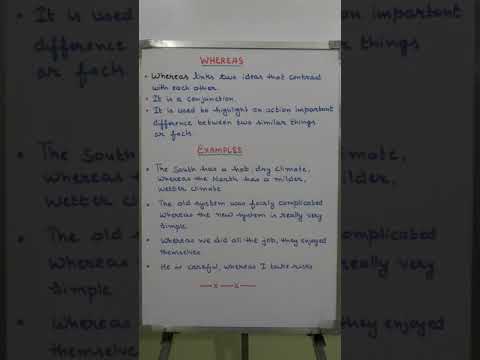 WHEREAS
• Whereas links two ideas that contrast
with each other.
• It is a conjunction.
• It is used to highlight an action important
difference between two similar things
or facts.
EXAMPLES
• The South has a hot, dry climate,
whereas the North has a milder,
wetter climate
• The old system was fairly complicated
whereas the new system is really very
simple
• Whereas we did all the job, they enjoyed
themselves.
• He is careful, whereas I take risks
—x—x—